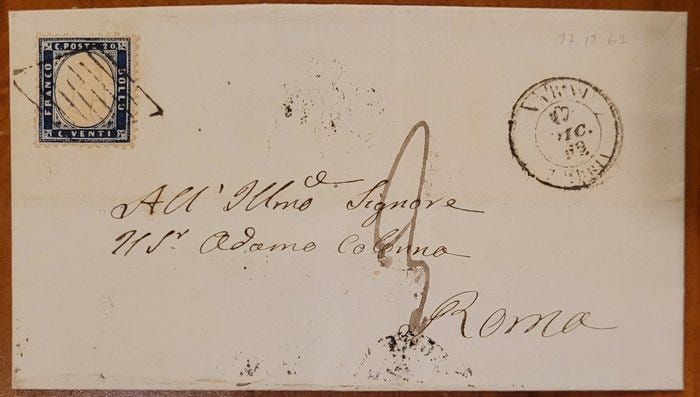 C. POSTE 20
FRANCO
BOLLO
C. VENTI
17.12.62
17
DIC.
62
UMBRIA
All' Illmo Signore
Adamo Colonna
Roma